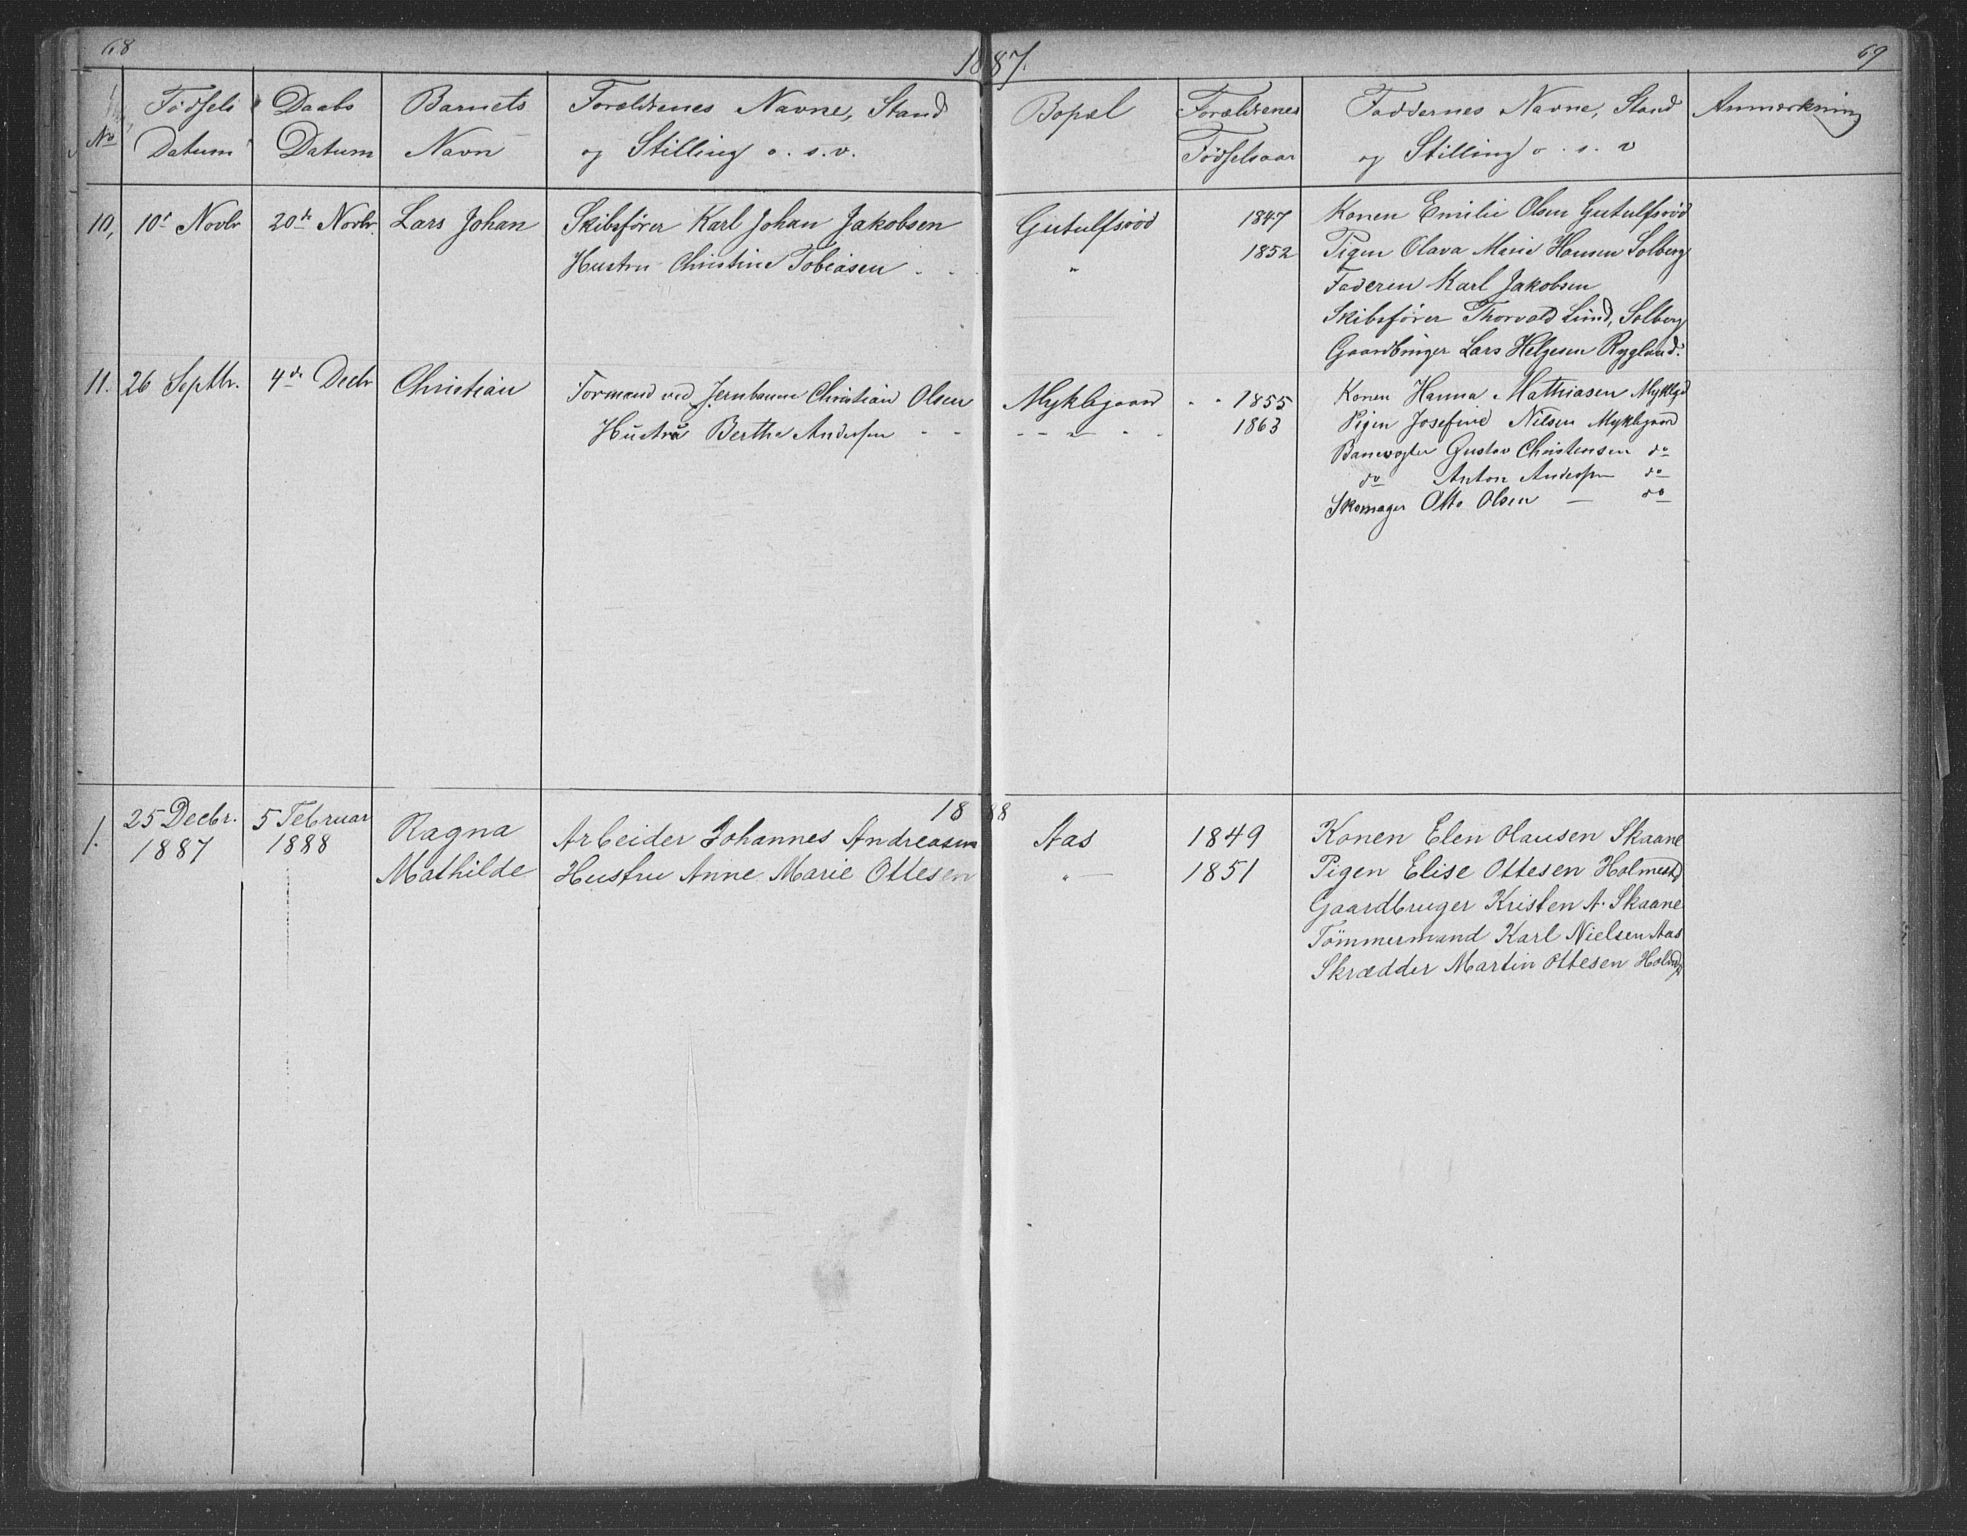 68
1887.
69
No
Fødsels Datum
Daabs Datum
Barnets Navn
Forældrenes Navne, Stand og Stilling o. s. v.
Bopæl
Forældrenes Fødselsaar
Faddernes Navne, Stand og Stilling o. s. v
Anmærkning
10, 10de Novbr 20de Novbr. Lars Johan Skibsfører Karl Johan Jakobsen Gutulfsrød 1847 Konen Emilie Olsen Gutulfsrød
Hustru Christine Tobiasen . . " 1852 Pigen Olava Marie Hansen Solberg
Faderen Karl Jakobsen
Skibsfører Thorvald Lund, Solberg
Gaardbruger Lars Helgesen Rygland.
11. 26 Septbr. 4de Decbr Christian Formand ved Jernbanen Christian Olsen Myklegaard 1855 Konen Hanna Mathiasen Myklgd
Hustru Berthe Andersen - - - - " - - 1863 Pigen Josefine Nilsen Myklegaard
Banevogter Gustav Christensen do
do Anton Andersen do
Skomager Otto Olsen — do
1888
1. 25 Decbr. 1887 5 Februar 1888 Ragna Mathilde Arbeider Johannes Andreasen Aas 1849 Konen Elen Olausen Skaane
Hustru Anne Marie Ottesen " — 1851 Pigen Elise Ottesen Holmestd
Gaardbruger Kristen A. Skaane
Tømmermand Karl Nielsen Aas
Skrædder Martin Ottesen